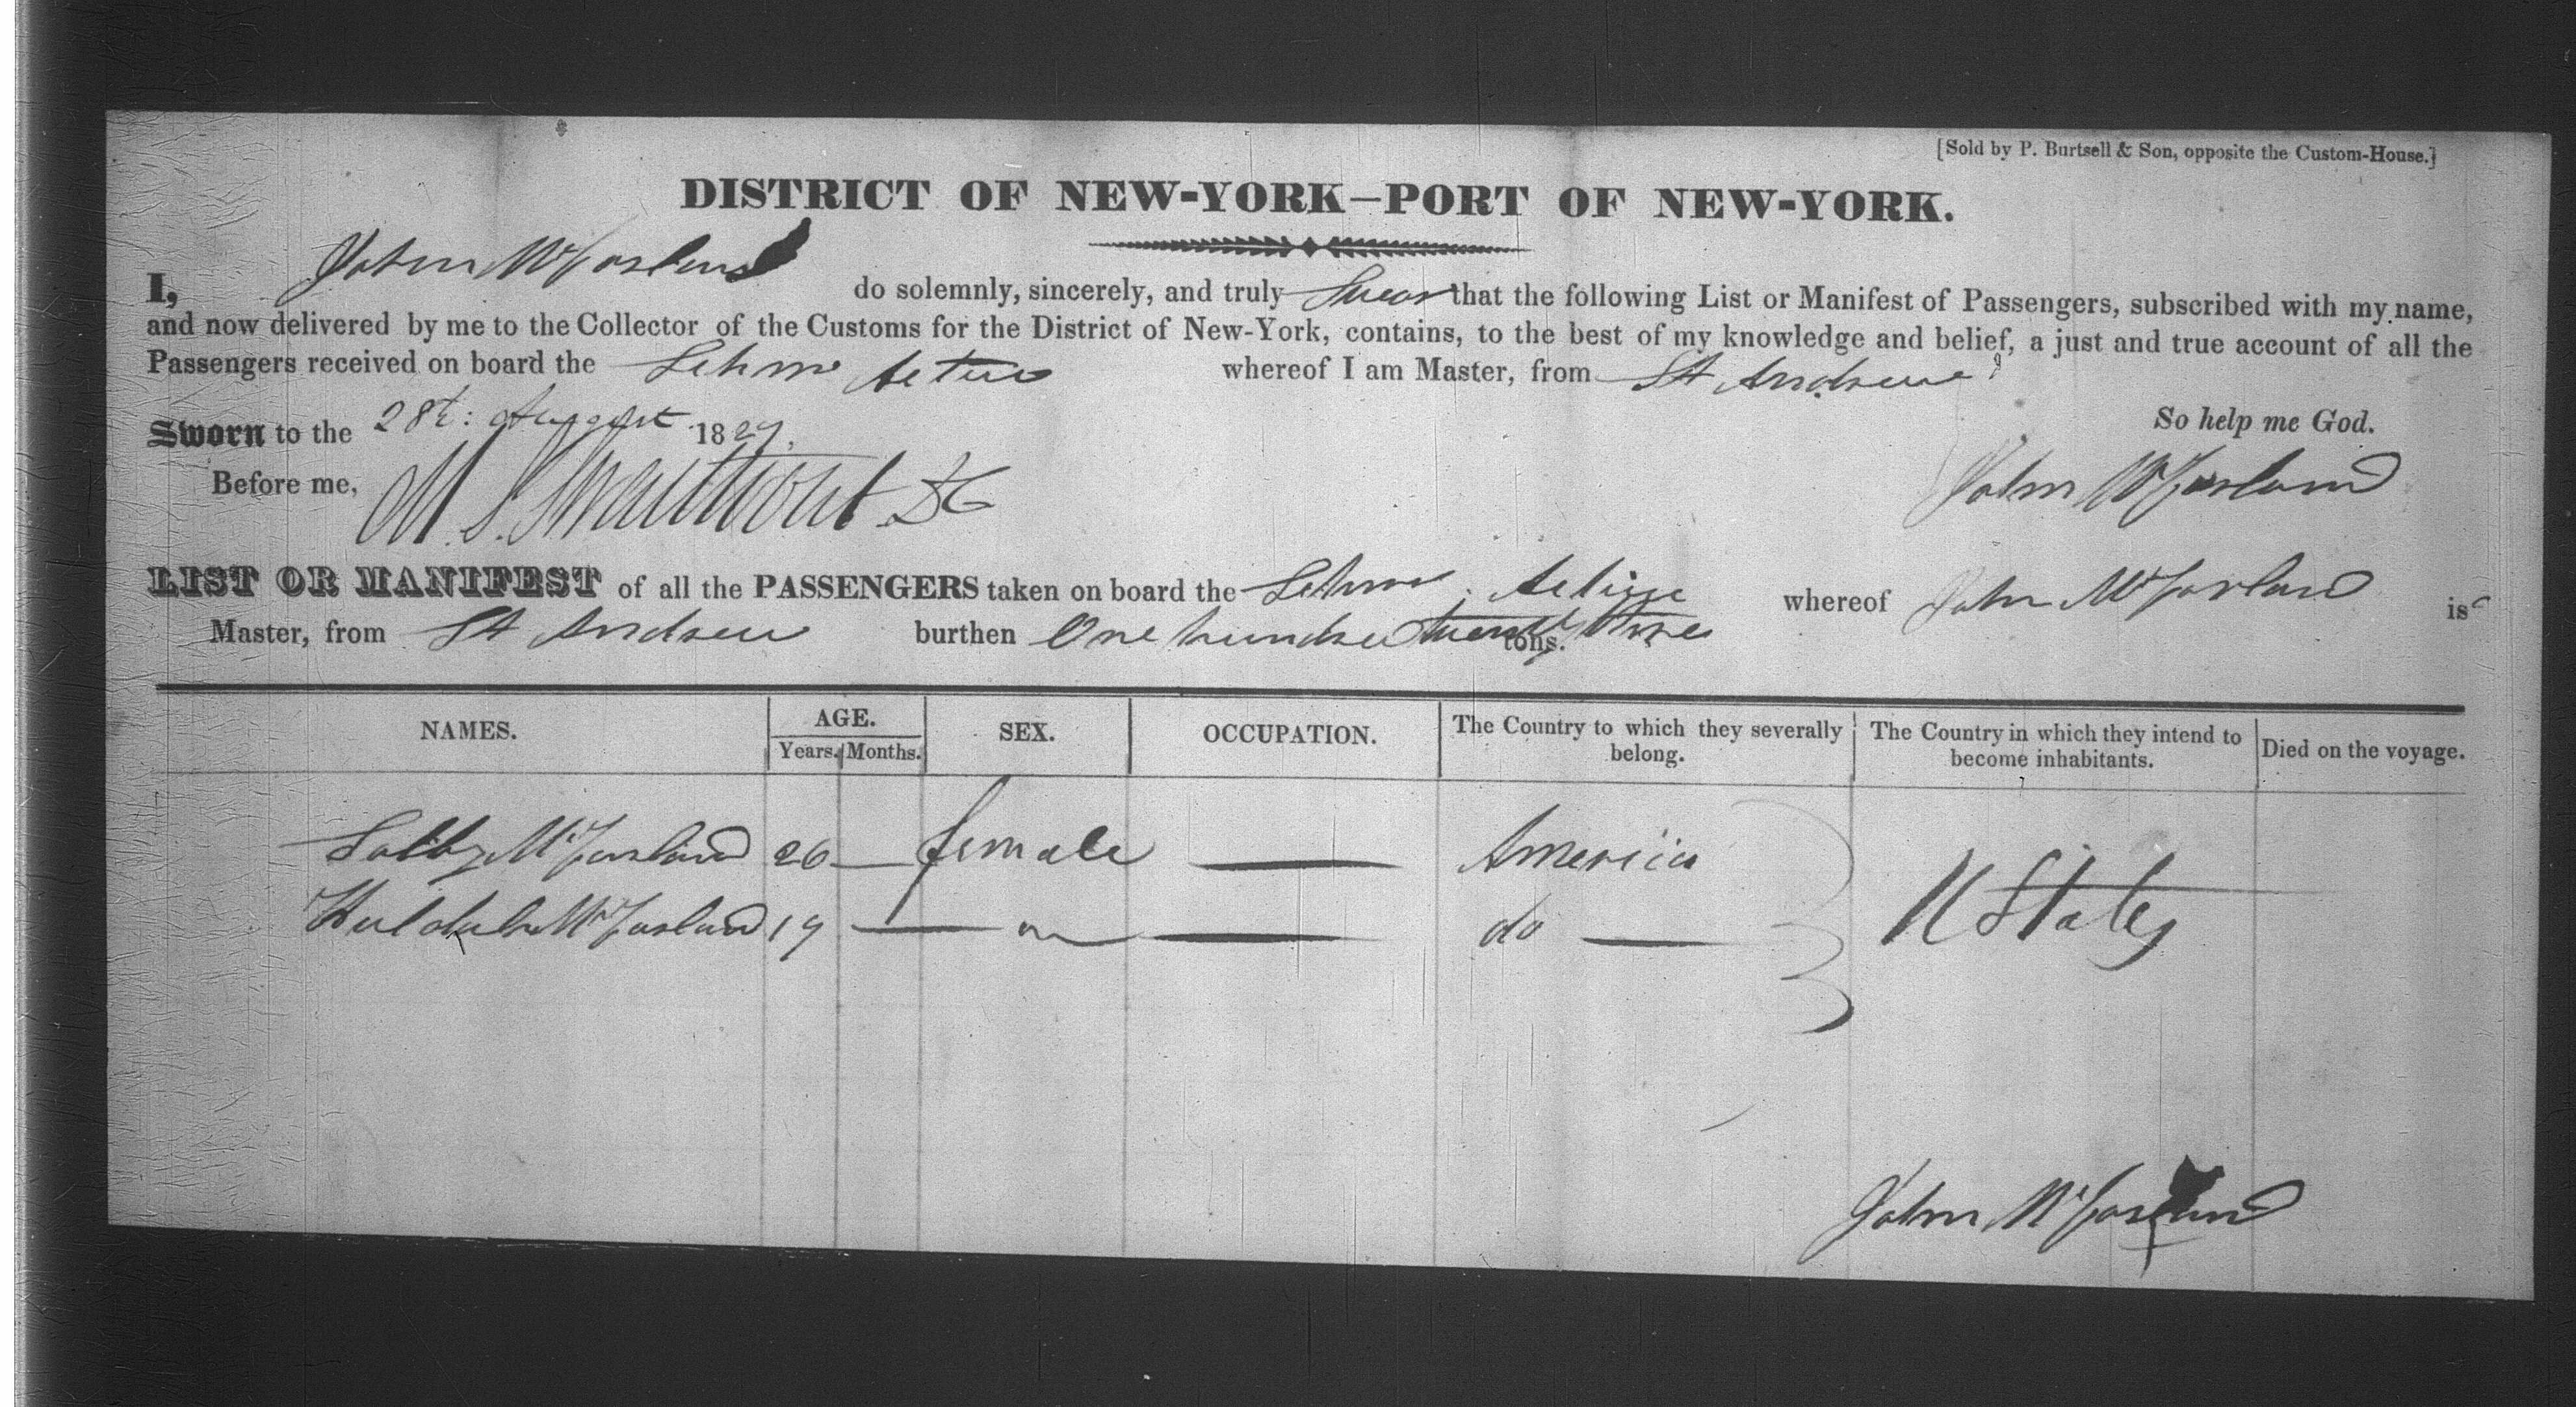 [Sold by P. Burtsell & Son, opposite the Custom-House.]
DISTRICT OF NEW-YORK—PORT OF NEW-YORK.
I, John McFarland do solemnly, sincerely, and truly Swear that the following List or Manifest of Passengers, subscribed with my name,
and now delivered by me to the Collector of the Customs for the District of New-York, contains, to the best of my knowledge and belief, a just and true account of all the
Passengers received on board the Schr whereof I am Master, from St Andrews
Sworn to the 28t: August 1829. So help me God.
Before me, John McFarland
M. S. Swartwout DC
LIST OR MANIFEST of all the PASSENGERS taken on board the Schr whereof John McFarland is
Master, from St Andrew burthen One hundred twenty tons.
NAMES. AGE. SEX. OCCUPATION. The Country to which they severally belong. The Country in which they intend to become inhabitants. Died on the voyage.
Years. Months.
McFarland 26 — female — America
Huldah McFarland 19 — — do — U States
John McFarland